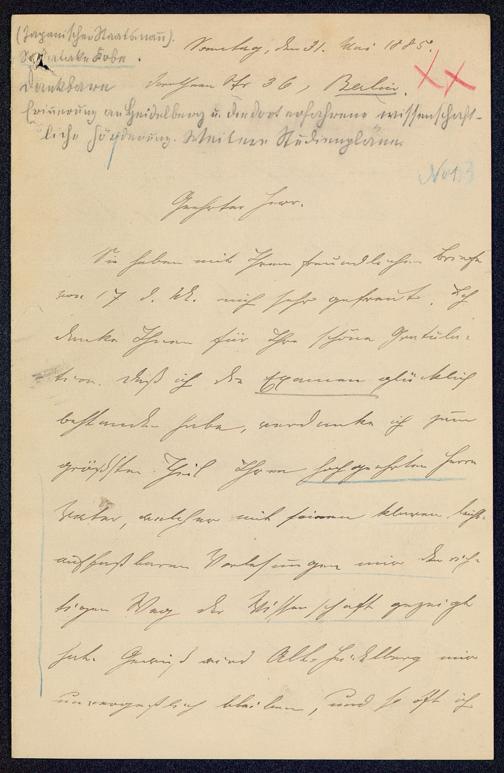 (Japanischer Staatsmañ).
Sonntag, den 31. Mai 1885.
Sakatake Kobe.
Dorotheen Str 36, Berlin.
Dankbare
Erinnerung an Heidelberg u. die dort erfahrene wissenschaft-
liche Förderung. Weitere Studienpläne.
No 13
Geehrter Herr.
Sie haben mit Ihrem freundlichen Briefe
von 17 d. M. mich sehr gefreut. Ich
danke Ihnen für Ihre schöne Gratula-
tion. Daß ich die Examen glücklich
bestanden habe, verdanke ich zum
größten Theil Ihrem hochgeehrten Herrn
Vater, welcher mit seinen klaren leicht-
auffaßbaren Vorlesungen mir den rich-
tigen Weg der Wissenschaft gezeigt
hat. Gewiß wird Alt-Heidelberg mir
unvergeßlich bleiben, und so oft ich